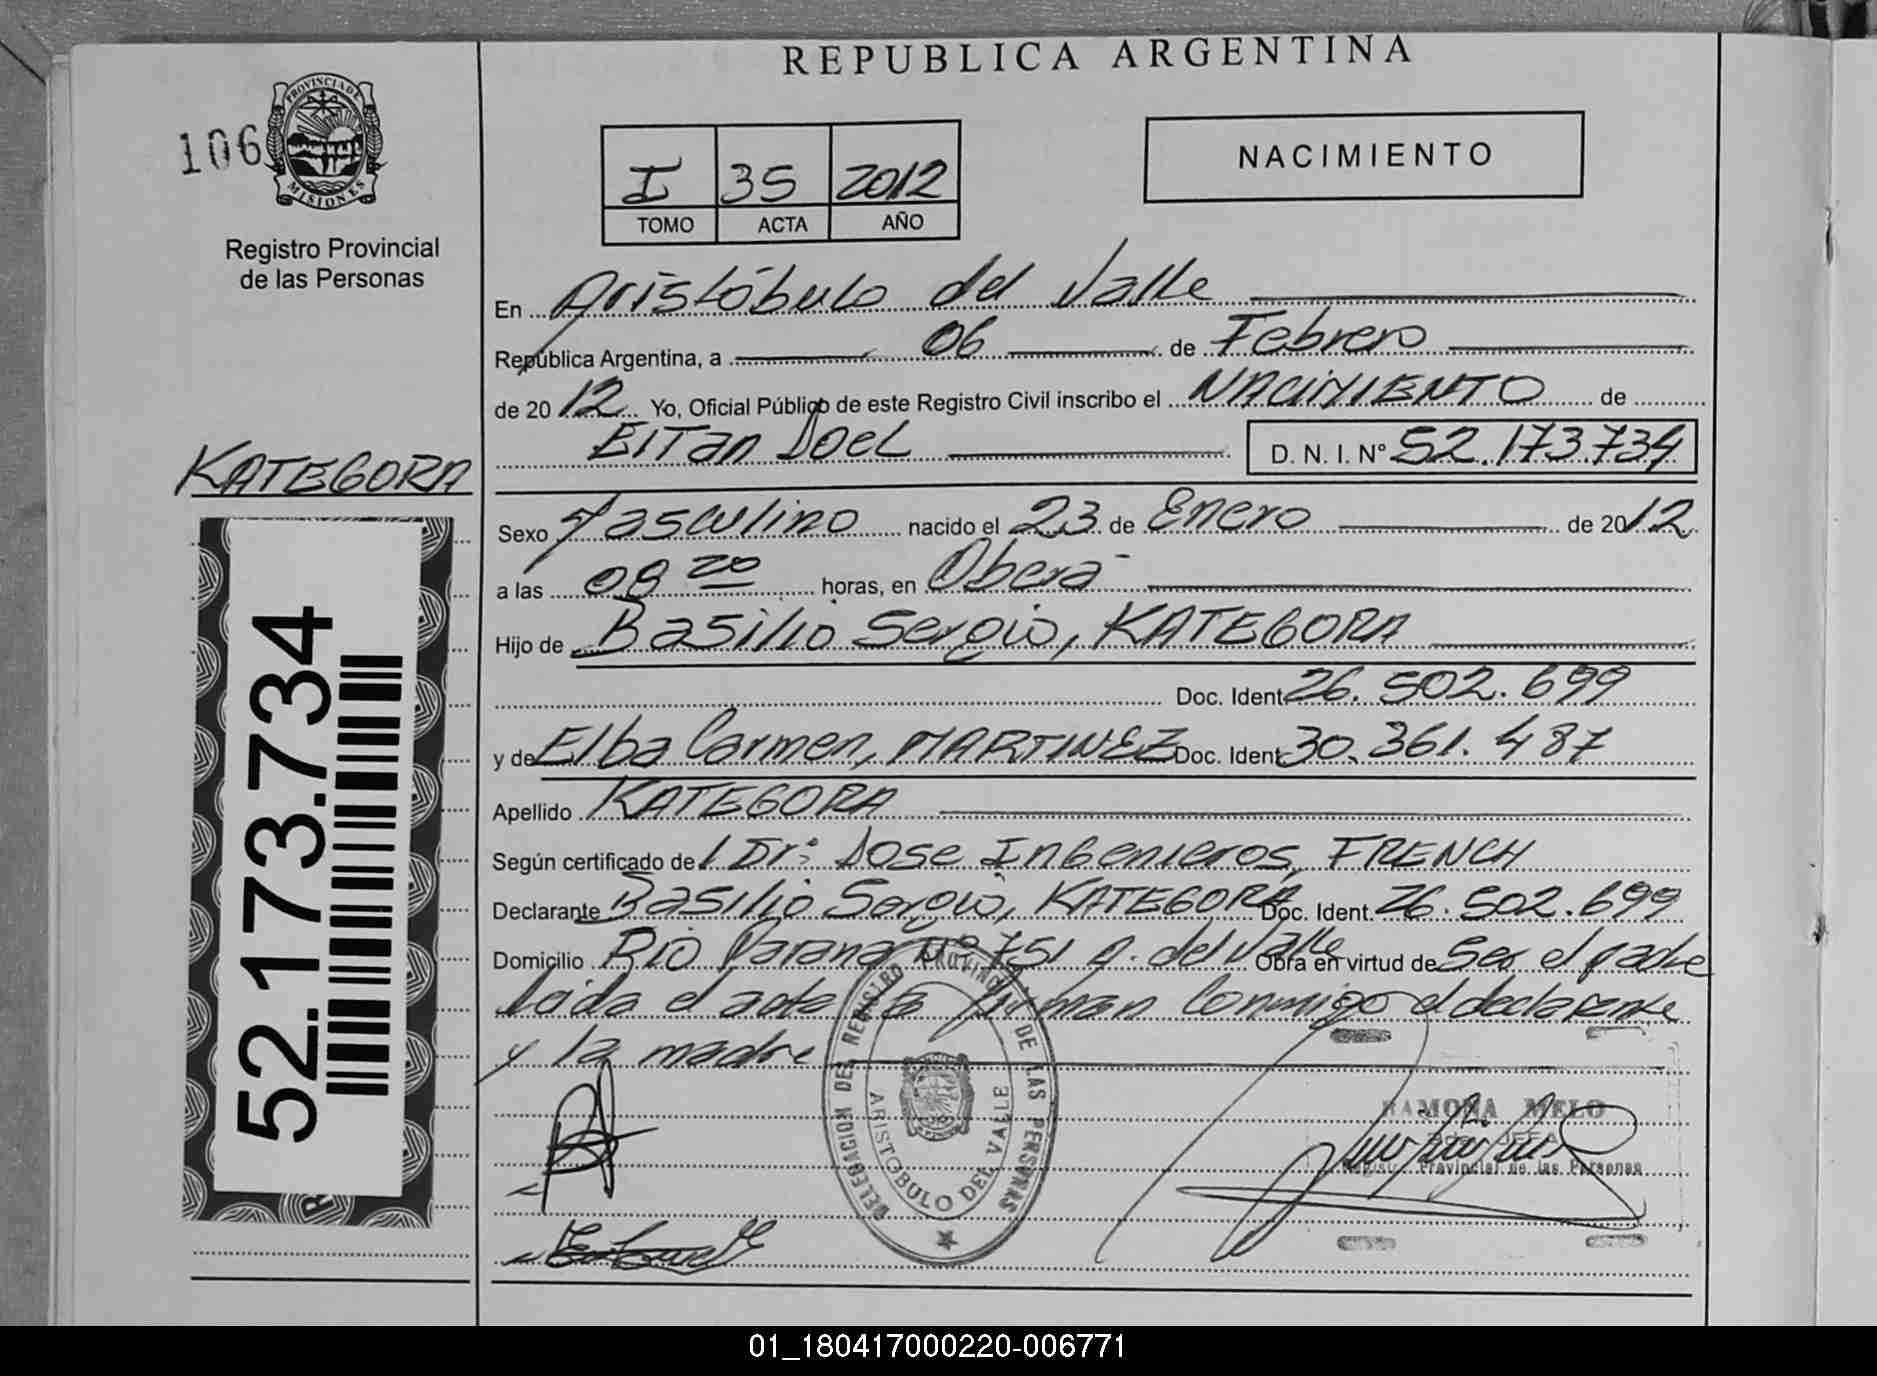 REPUBLICA ARGENTINA
106
PROVINCIA DE
MISIONES
Registro Provincial
de las Personas
I 35 2012
TOMO ACTA AÑO
NACIMIENTO
En Aristóbulo del Valle
República Argentina, a 06 de Febrero
de 2012 Yo, Oficial Público de este Registro Civil inscribo el NACIMIENTO de
Eitan Joel D. N. I. Nº 52.173.734
KATEGORA
Sexo Masculino nacido el 23 de Enero de 2012
a las 08 20 horas, en Oberá
Hijo de Basilio Sergio, KATEGORA
Doc. Ident. 26.502.699
y de Elba Carmen, MARTINEZ Doc. Ident. 30.361.487
Apellido KATEGORA
Según certificado de / Dr: Jose Ingenieros, FRENCH
Declarante Basilio Sergio, KATEGORA Doc. Ident. 26.502.699
Domicilio Rio Parana Nº 751 A. del Valle Obra en virtud de Ser el padre
Leida el acta la firman conmigo el declarante
y la madre
52.173.734
DELEGACION DEL REGISTRO PROVINCIAL DE LAS PERSONAS
ARISTOBULO DEL VALLE
RAMONA MELO
JEFA
Registro Provincial de las Personas
01_180417000220-006771